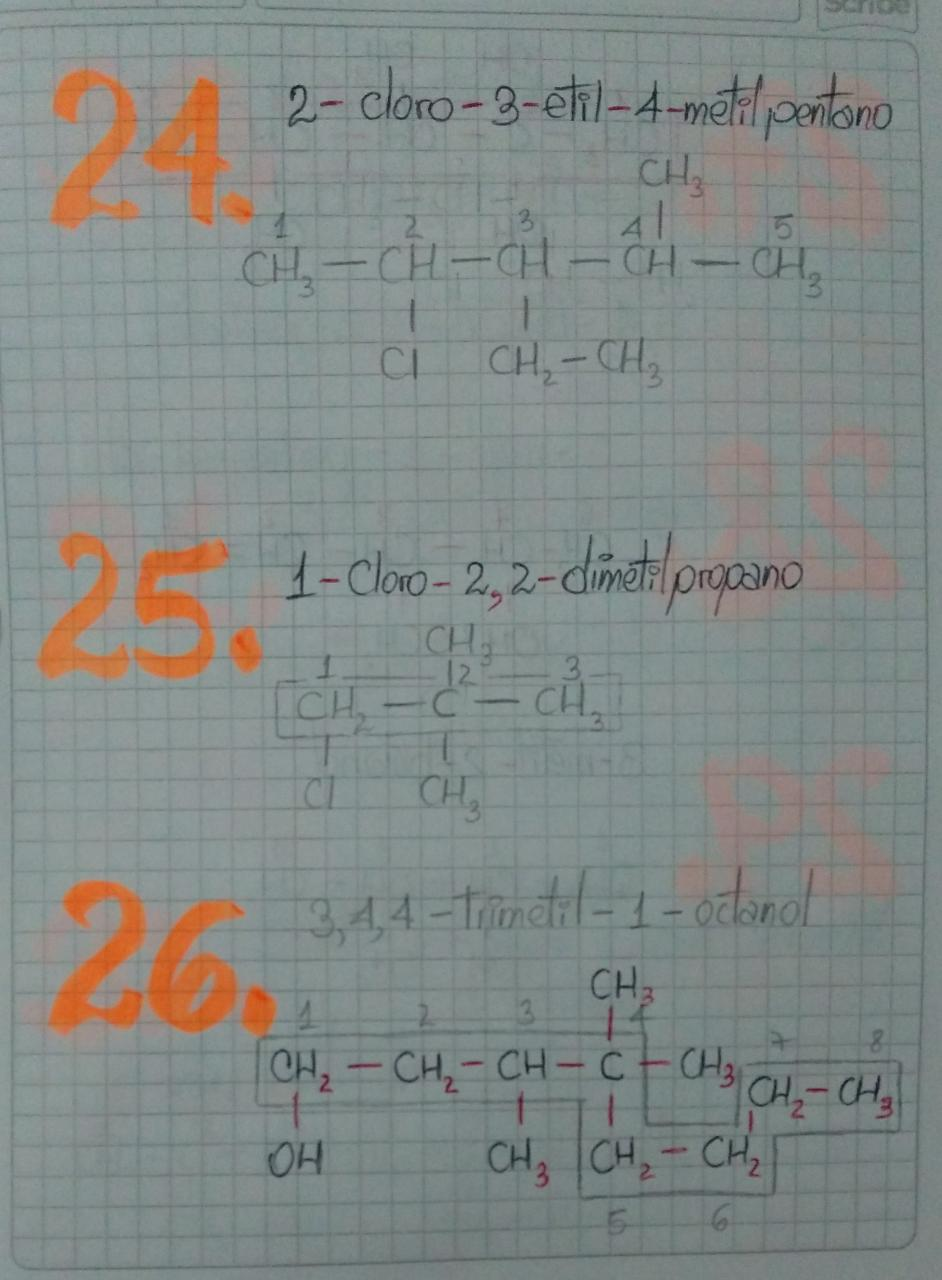 Scribe
24. 2-cloro-3-etil-4-metilpentano
CH₃
1 2 3 4 5
CH₃ — CH — CH — CH — CH₃
Cl CH₂ — CH₃
25. 1-Cloro-2,2-dimetilpropano
CH₃
1 2 3
CH₂ — C — CH₃
Cl CH₃
26. 3,4,4-trimetil-1-octanol
CH₃
1 2 3 4 7 8
CH₂ — CH₂ — CH — C — CH₃ CH₂ — CH₃
OH CH₃ CH₂ — CH₂
5 6